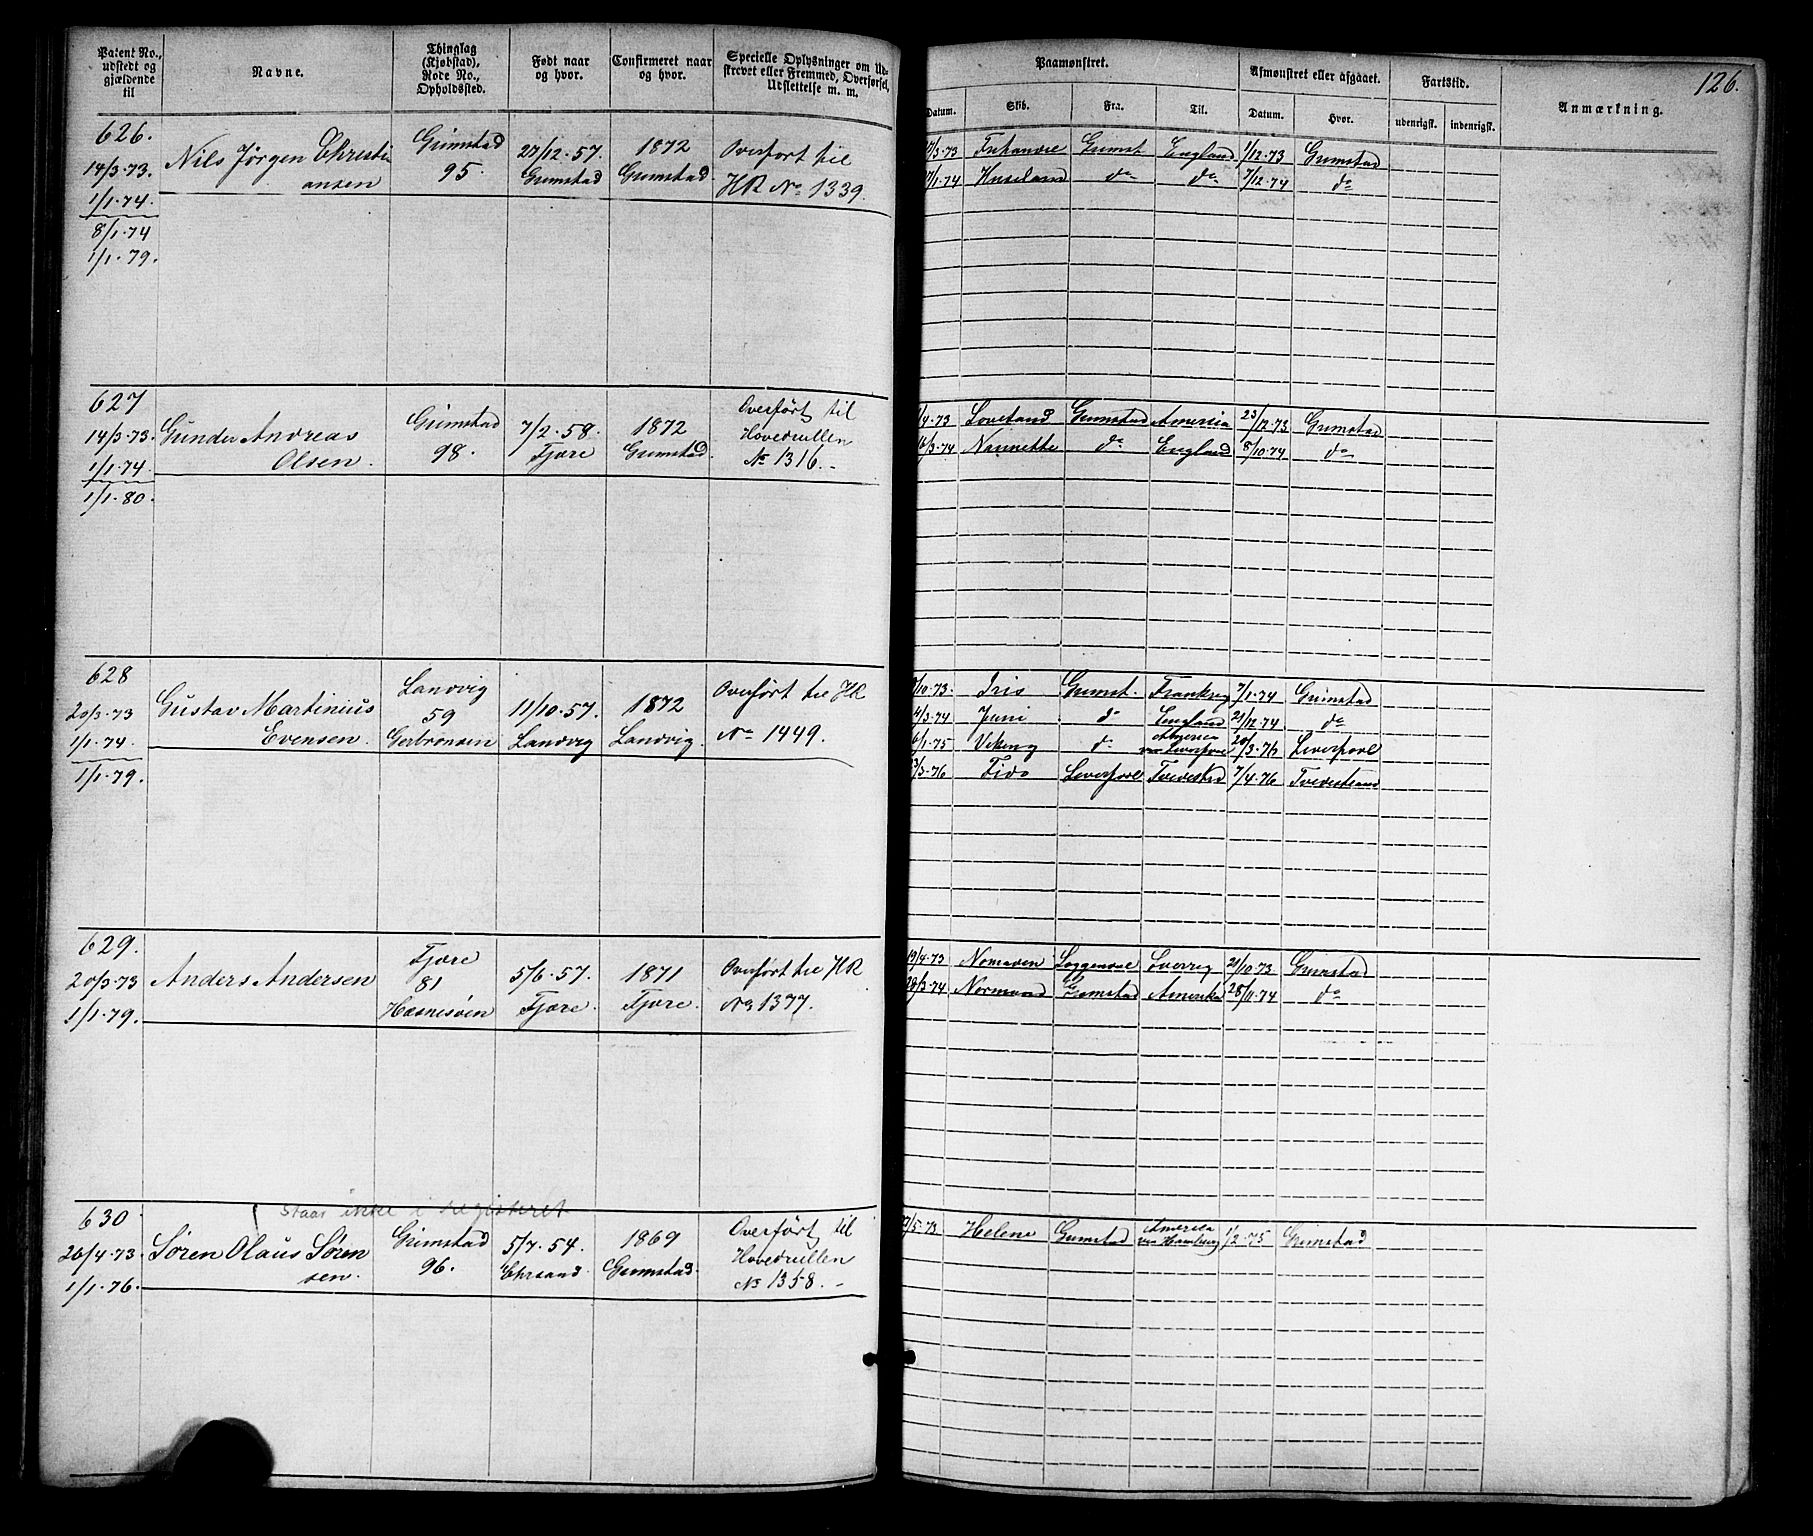 Patent No., udstedt og gjældende til
Navne.
Thinglag (Kjøbstad), Rode No., Opholdssted.
Født naar og hvor.
Confirmeret naar og hvor.
Specielle Oplysninger om Udskrevet eller Fremmed, Overførsel, Udslettelse m. m.
Paamønstret.
Datum.
Skib.
Fra.
Til.
Afmønstret eller afgaaet.
Datum.
Hvor.
Fartstid.
udenrigsk.
indenrigsk.
Anmærkning.
126.
626.
14/3.73.
1/1.74.
8/1.74
1/1.79.
Nils Jørgen Christi
ansen
Grimstad
95.
27/12.57.
Grimstad
1872
Grimstad
Overført til
HR No 1339.
/3.73 Grimst England 1/12.73 Grimstad
/1.74 Huseland do do 7/12.74 do
627
14/3.73.
1/1.74
1/1.80.
Gunder Andreas
Olsen.
Grimstad
98.
7/2.58.
Fjære
1872
Grimstad.
Overført til
Hovedrullen
No 1316.-
/4.73 Loveland Grimstad America 23/12.73 Grimstad
/3.74 Nannette do England 8/10.74 do
628
20/3.73
1/1.74.
1/1.79.
Gustav Martinius
Evensen.
Landvig
59
Gerbronsen
11/10.57.
Landvig
1872
Landvig.
Overført til HR
No 1449.
/10.73. Iris Grimst. Frankrig 7/1.74 Grimstad
/3.74 Juni do England 21/12.74 do
6/1.75 Viking do America via Liverpool 20/3.76 Liverpool
/3.76 Fido Liverpool Tvedestrd 7/4.76 Tvedestrand
629.
20/3.73
1/1.79.
Anders Andersen
Fjære
81
Hasnesøen
5/6.57.
Fjære
1871
Fjære.
Overført til HR
No 1377.
19/4.73 Sverrig 21/10.73 Grimstad
28/3.74 Normand Grimstad Amerika 28/11.74 do
Staar ikke i registeret
630.
26/4.73
1/1.76.
Søren Olaus Søren
sen.
Grimstad
96.
5/7.54.
Chrsand.
1869
Grimstad.
Overført til
Hovedrullen
No 1358.-
/5.73 Helene Grimstad America via Hamburg 1/2.75 Grimstad